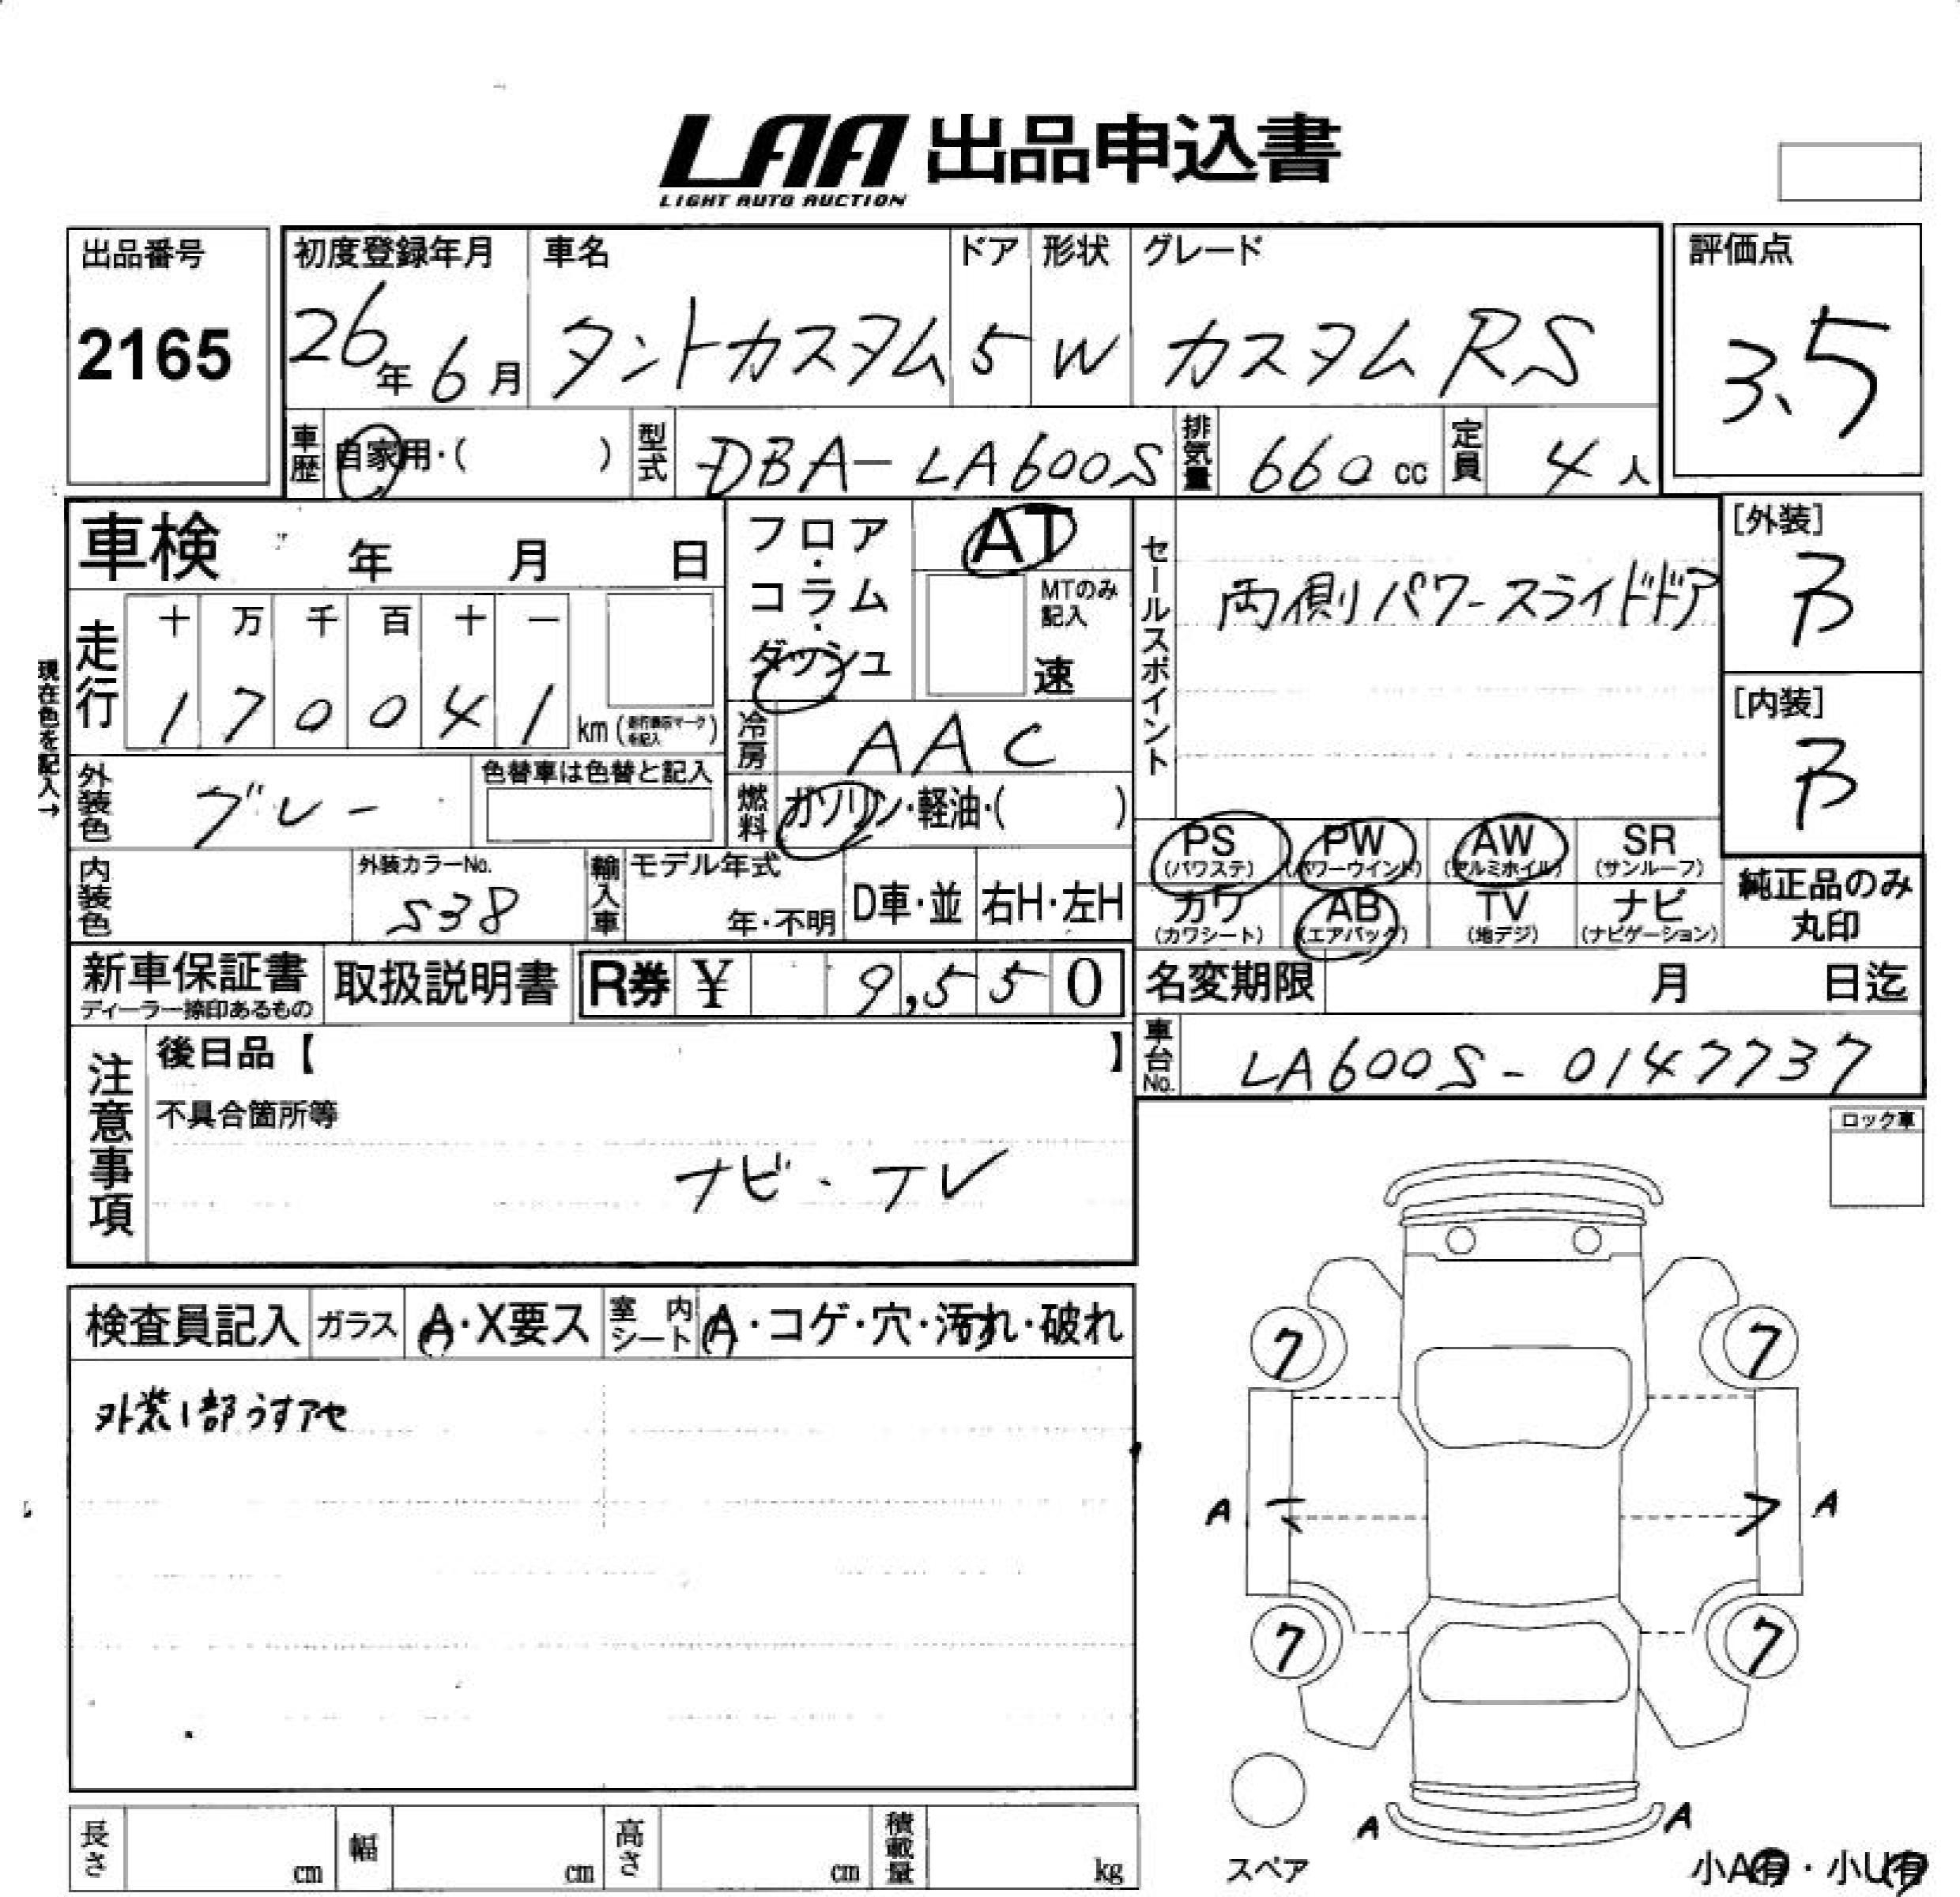 LAA 出品申込書
LIGHT AUTO AUCTION
出品番号
2165
初度登録年月
26年 6月
車名
タントカスタム
ドア
5
形状
W
グレード
カスタムRS
評価点
3.5
車歴 自家用・( )
型式 DBA-LA600S
排気量 660 cc
定員 4 人
車検 年 月 日
フロア・コラム・ダッシュ
AT
MTのみ記入
速
セールスポイント
両側パワースライドドア
[外装]
B
[内装]
B
現在色を記入→
走行
十 万 千 百 十 一
1 7 0 0 4 1 km (走行表示マークを記入)
冷房 AAC
外装色 グレー
色替車は色替と記入
燃料 ガソリン・軽油・( )
PS (パワステ)
PW (パワーウインド)
AW (アルミホイル)
SR (サンルーフ)
カワ (カワシート)
AB (エアバック)
TV (地デジ)
ナビ (ナビゲーション)
純正品のみ
丸印
内装色
外装カラーNo.
S38
輸入車
モデル年式
年・不明
D車・並
右H・左H
新車保証書
ディーラー捺印あるもの
取扱説明書
R券 ¥ 9,550
名変期限 月 日迄
車台No. LA600S-0147737
注意事項
後日品【 】
不具合箇所等
ナビ・TV
ロック車
検査員記入
ガラス A・X要ス
室内シート A・コゲ・穴・汚れ・破れ
外装1部うすアセ
7 7
A A
7 7
A A
スペア
小A有・小U有
長さ cm
幅 cm
高さ cm
積載量 kg